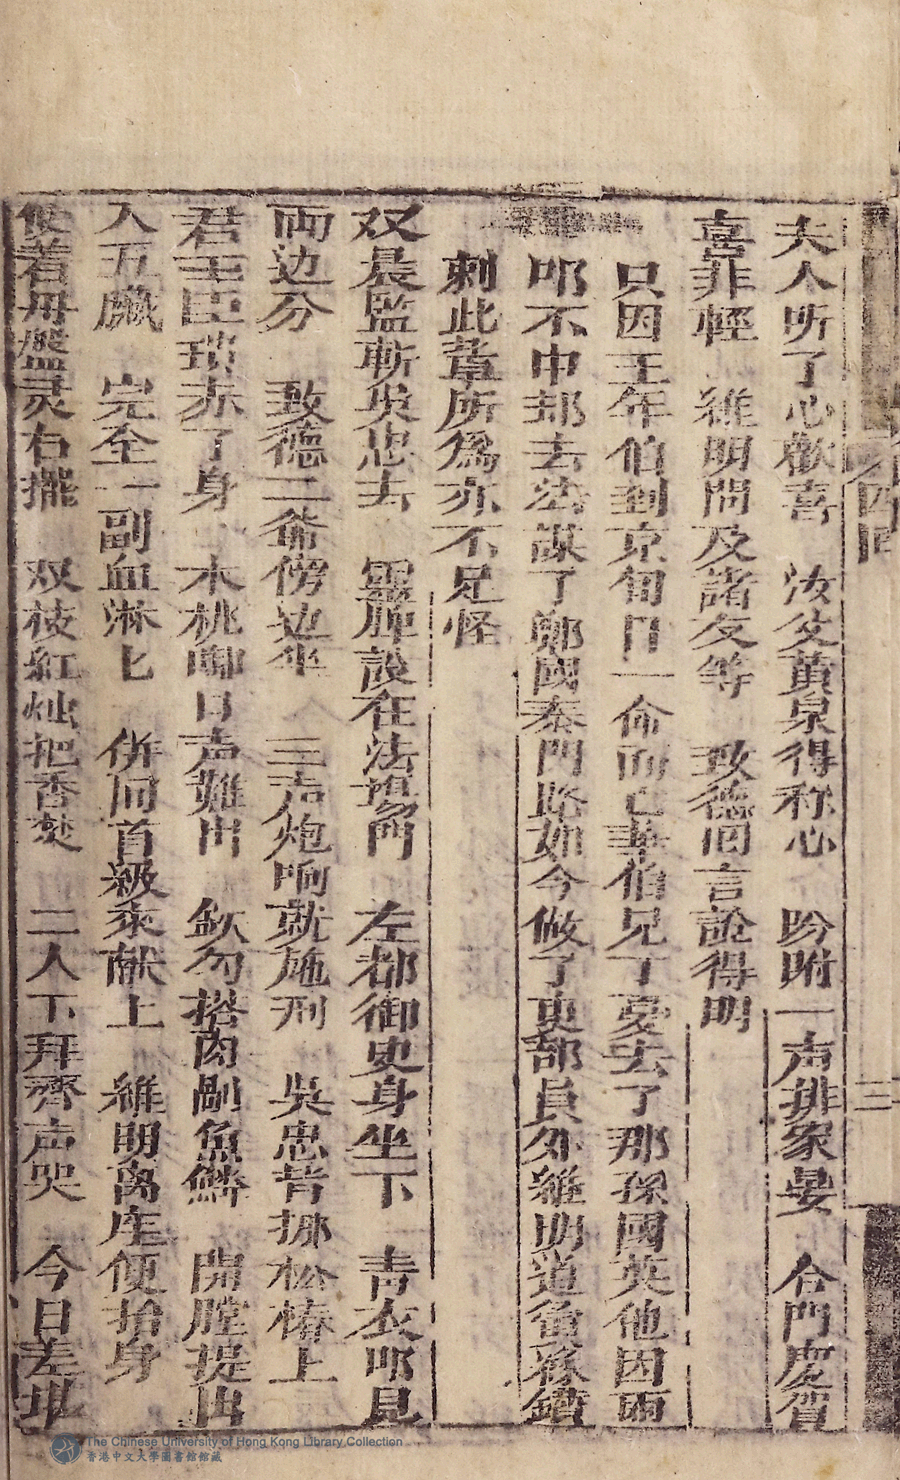 夫人听了心歡喜　汝父黃泉得称心　吩咐一声排家宴　合門慶賀
喜非輕　維明問及諸友等　致德回言說得明
只因王年伯到京旬日一命而亡韋伯兄丁憂去了那孫國英他因兩
叩不中却去法謀了鄭國泰門路如今做了吏部員外維明道爾稼鑽
刺此輩所為亦不足怪
双晨監斬吳忠去　靈牌設在法場門　左都御史身坐下　青衣叩見
両边分　致德二爺傍边坐　三声炮响就施刑　吳忠背挷松樁上
君王臣瑣赤了身　木桃啣口声難出　欽勾搭肉剮魚鱗　開膛提出
人五臟　完全一副血淋匕　併同首級來献上　維明离座便抬身
便着毋盤灵右擺　双枝紅灿把香焚　二人下拜齊声哭　今日差堪
四回
三
The Chinese University of Hong Kong Library Collection
香港中文大學圖書館館藏